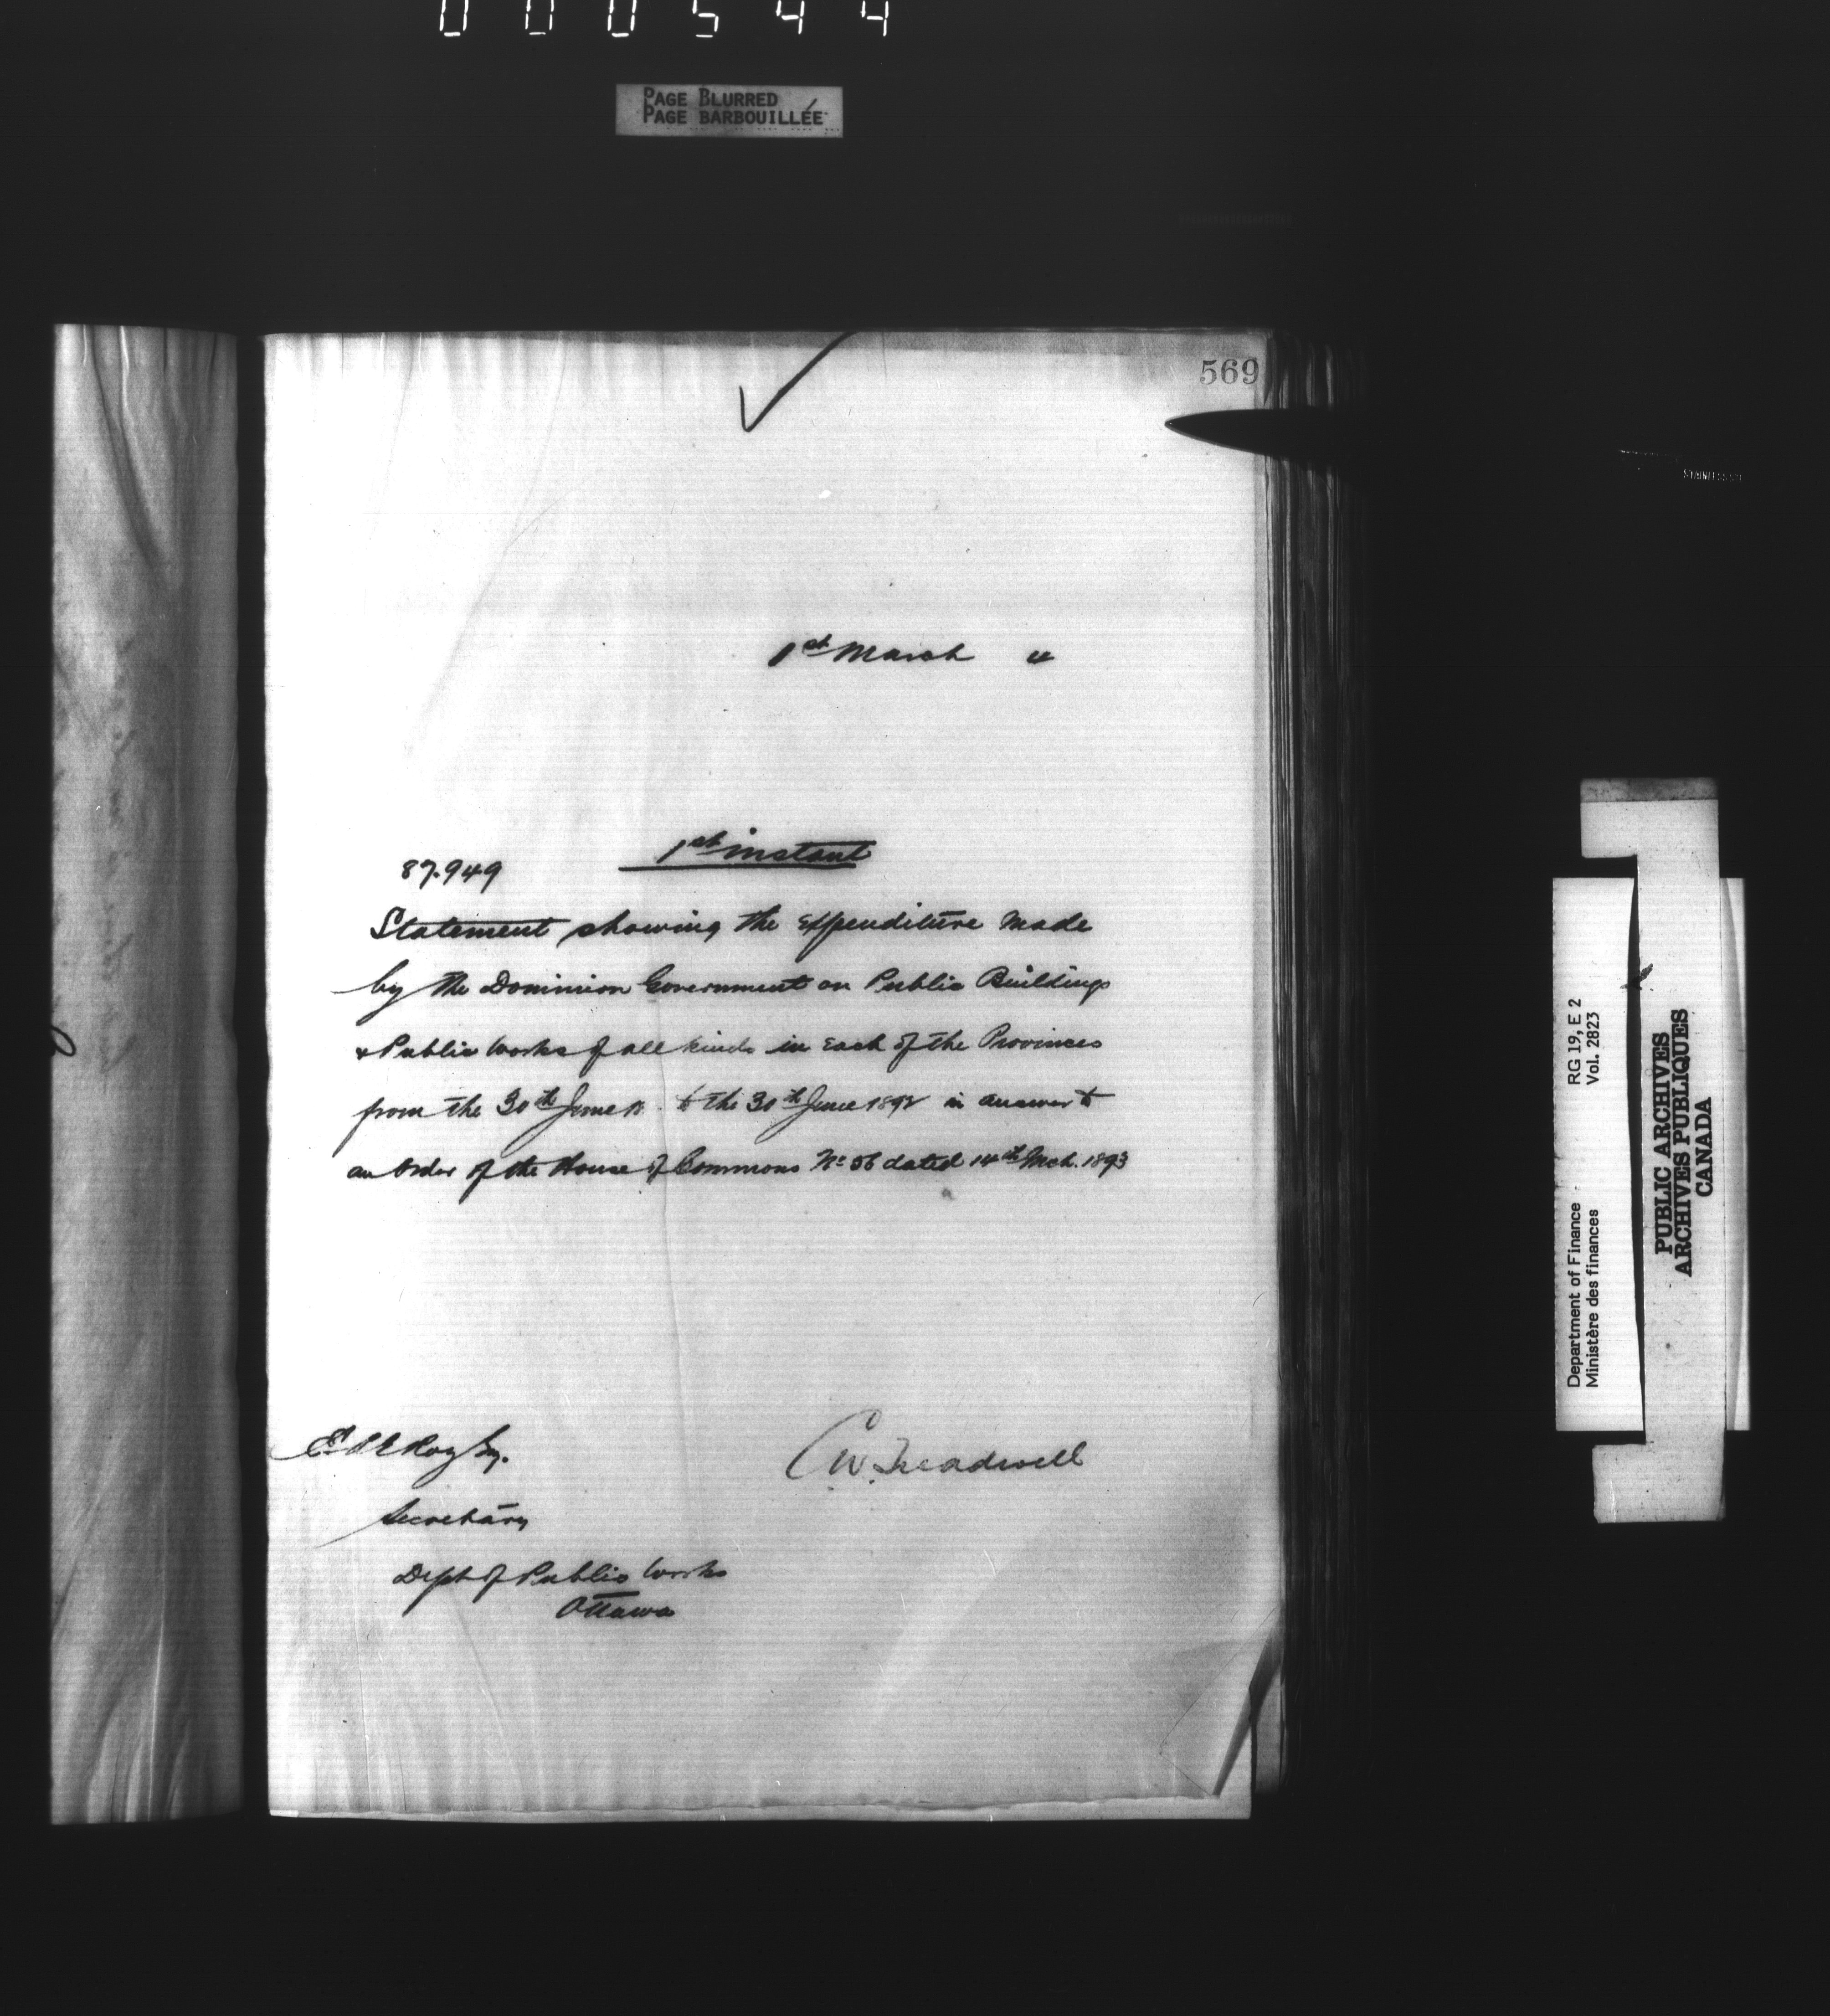 000544
PAGE BLURRED
PAGE BARBOUILLÉE
569
1st March 4
1st instant
87.949
Statement showing the Expenditure made
by the Dominion Government on Public Buildings
& Public Works of all kinds in each of the Provinces
from the 30th June 18 to the 30th June 1892 in answer to
an Order of the House of Commons No 56 dated 14th Mch. 1893
Roy Esq.
Secretary
Dept of Public Works
Ottawa
C W. Treadwell
Department of Finance RG 19, E 2
Ministère des finances Vol. 2823
PUBLIC ARCHIVES
ARCHIVES PUBLIQUES
CANADA